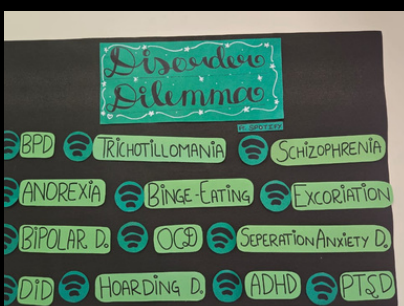 Disorder
Dilemma
Ft. SPOTIFY
BPD TRICHOTILLOMANIA SCHIZOPHRENIA
ANOREXIA BINGE-EATING EXCORIATION
BIPOLAR D. OCD SEPERATION ANXIETY D.
DID HOARDING D. ADHD PTSD